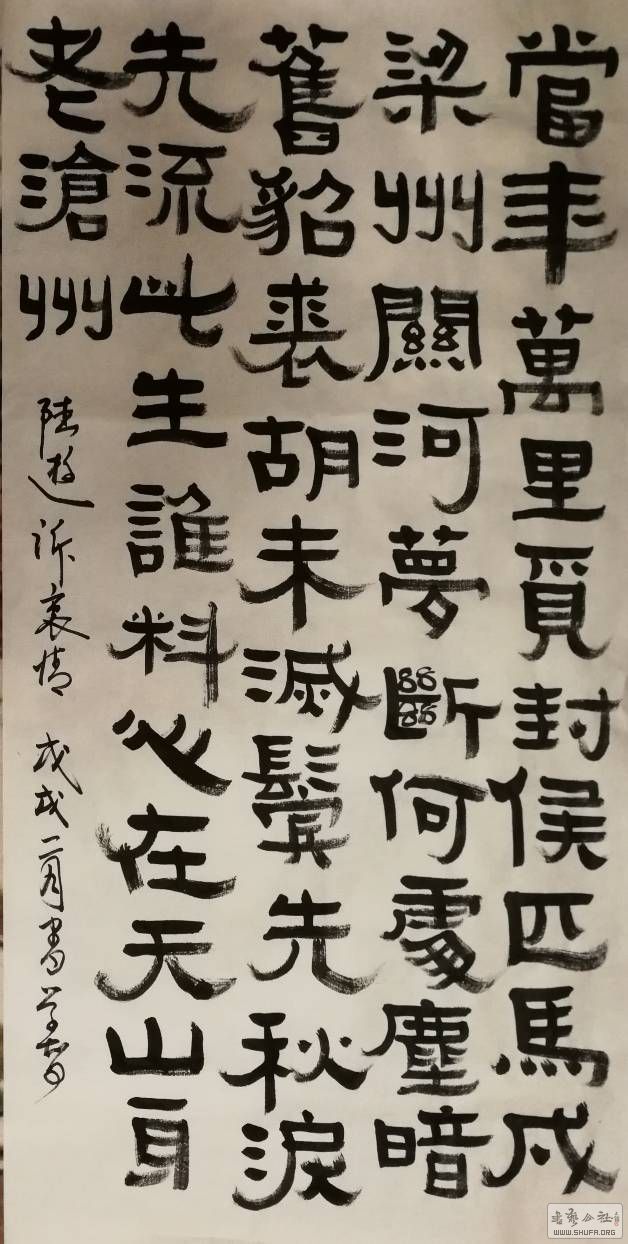 當年萬里覓封侯匹馬戍
梁州關河夢斷何處塵暗
舊貂裘胡未滅鬢先秋淚
先流此生誰料心在天山身
老滄州
陸遊訴衷情 戊戌二月書
书艺公社
WWW.SHUFA.ORG